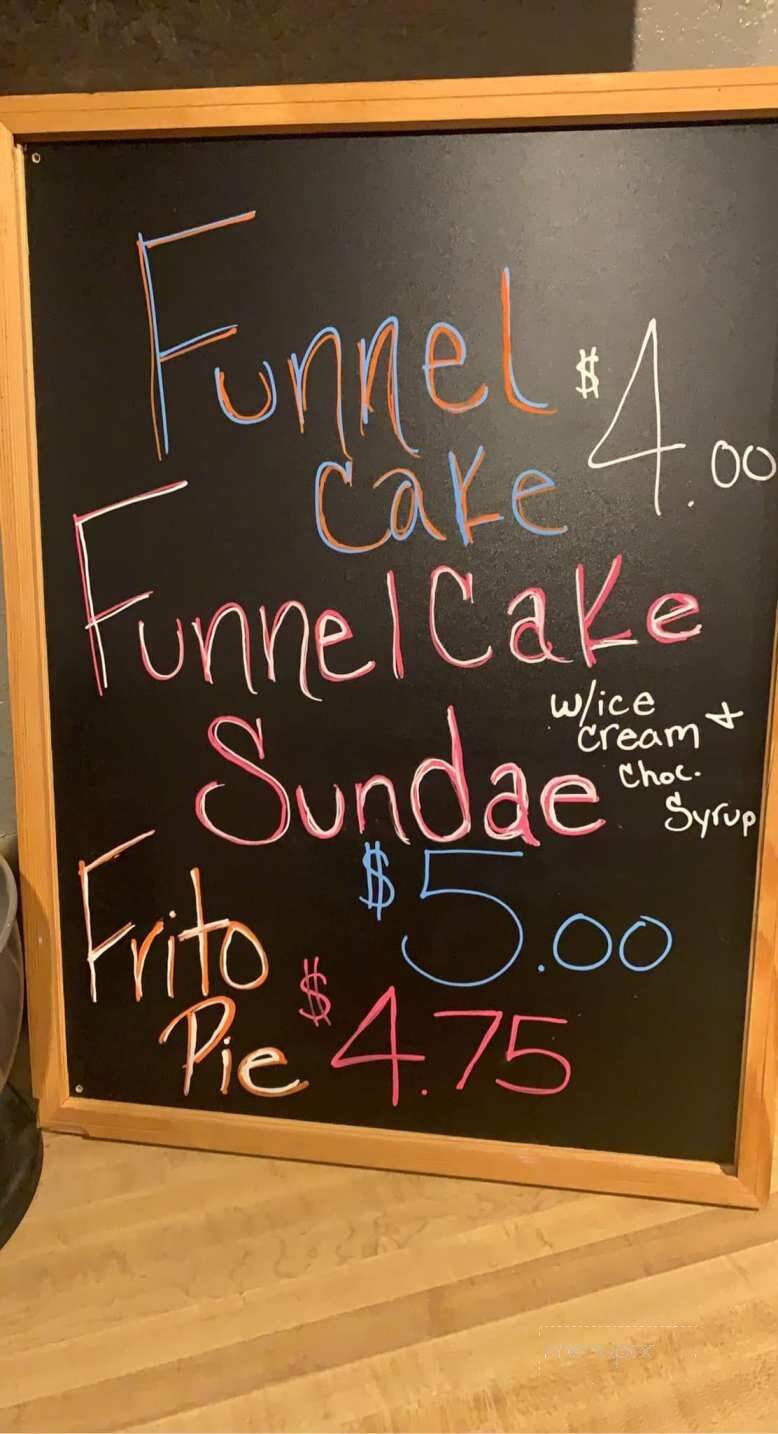 Funnel
Cake $4.00
Funnel Cake
Sundae w/ice
cream +
choc.
Syrup
$5.00
Frito
Pie $4.75